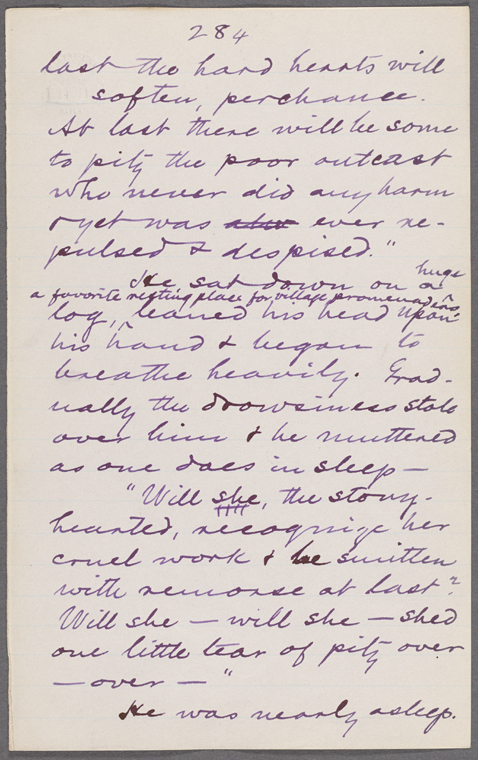 284
last the hard hearts will
soften, perchance.
At last there will be some
to pity the poor outcast
who never did any harm
& yet was ever re-
pulsed & despised."
He sat down on a huge
a favorite resting place for village promenaders,
log, leaned his head upon
his hand & began to
breathe heavily. Grad-
ually the drowsiness stole
over him & he muttered
as one does in sleep —
"Will she, the stony-
hearted, recognize her
cruel work & be smitten
with remorse at last?
Will she — will she — shed
one little tear of pity over
— over — "
He was nearly asleep.